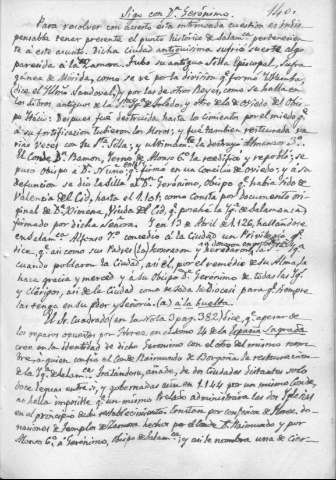 Sigo con Dn. Gerónimo. 140.
Para resolver con acierto esta intrincada cuestión es indis-
pensable tener presente el punto histórico de Salamca. pertenecien-
te a este asunto. Dicha Ciudad antiquísima sufrió suerte algo
parecida á la de Zamora. Tubo su antigua Silla Episcopal, Sufra-
gánea de Mérida, como se vé por la división qe. formó Wamba,
(dice el Ilmo. Sandoval) y por las de otros Reyes, como se halla en
los libros antiguos de la Sta. Igª. de Toledo, y otro de la de Oviedo del Obis-
po Itacio: Después fué destruida hasta los cimientos por el miedo qe.
á su fortificación tubieron los Moros; y fué tambien restaurada va-
rias veces con su Sta. Silla; y ultimamte. la destruyó Almanzor
El Conde Dn. Ramon, Yerno de Alonso 6º la reedificó y repobló; se
puso Obispo á Dn. Nuno; qe. firmó en un Concilio de Oviedo; y a su
defuncion se dio la Silla al Dn. Gerónimo, Obispo qe. había sido de
Valencia del Cid, hasta el 1101, como consta por documento ori-
ginal de Dª. Ximena, Viuda del Cid, qe. poseía la Igª. de Salamanca)
firmado por dicha Señora. Y en 13 de Abril de 1.126, hallandore
en Salamca. Alfonso 7º concedió a la Ciudad un Privilegio qe.
dice, qe. así como sus Padres
cuando poblaron la Ciudad, así él, por el remedio de su Alma, la
hace gracia y merced y á su Obispo Dn. Gerónimo de todas las Igs.
y Clérigos, así de la Ciudad como de toda la diocesi para qe. siempre
las tenga en su poder y Señoría. (a) á la buelta.
El Sr. Cuadrado (en la Nota 2 pag. 382) dice, qe. apesar de
los reparos opuestos por Florez en el tomo 14 de la España Sagrada
cree en la identidad de dicho Geronimo con el otro del mismo nom-
bre, á quien confió el Conde Raimundo de Borgoña la restauracion
de la Igª. de Salamca. Tratándose, añade, de dos Ciudades distantes solo
doce leguas entre sí, y gobernadas aun en 1.144 por un mismo Conde,
no halla imposible qe. un mismo Prelado administrara las dos Iglesias
en el principio de su restablecimiento. Constan por confesion de Florez, do-
naciones de templos de Zamora hechas por el Conde Dn. Raimundo y por
Alonso 6º. á Gerónimo, Obispo de Salamca.; y así le nombra una de cier-